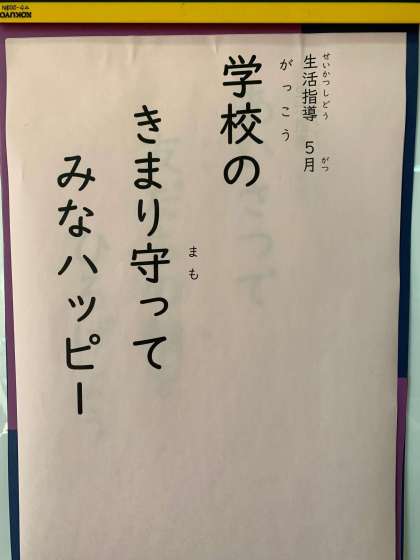 生活指導 5月
せいかつしどう がつ
学校の
がっこう
きまり守って
まも
みなハッピー
KOKUYO